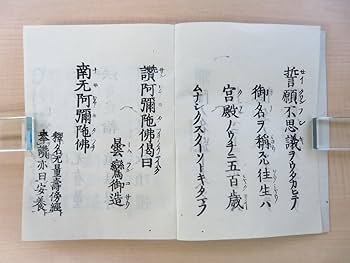 誓願不思議ヲウタカヒテ
御名ヲ稱スル往生ハ
宮殿ノウチニ五百歳
ムナシクスクトソトキタマフ
讃阿彌陀佛偈曰
曇鸞御造
南无阿彌陀佛
釋名无量壽傍經
奉讃亦曰安養